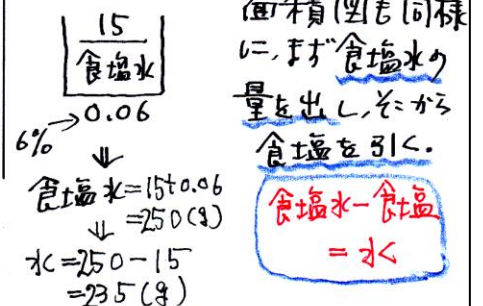 15
食塩水
0.06
6%
⇓
食塩水=15÷0.06
=250(g)
⇓
水=250-15
=235(g)
面積図も同様
に,まず食塩水の
量を出し,そこから
食塩を引く.
食塩水-食塩
=水